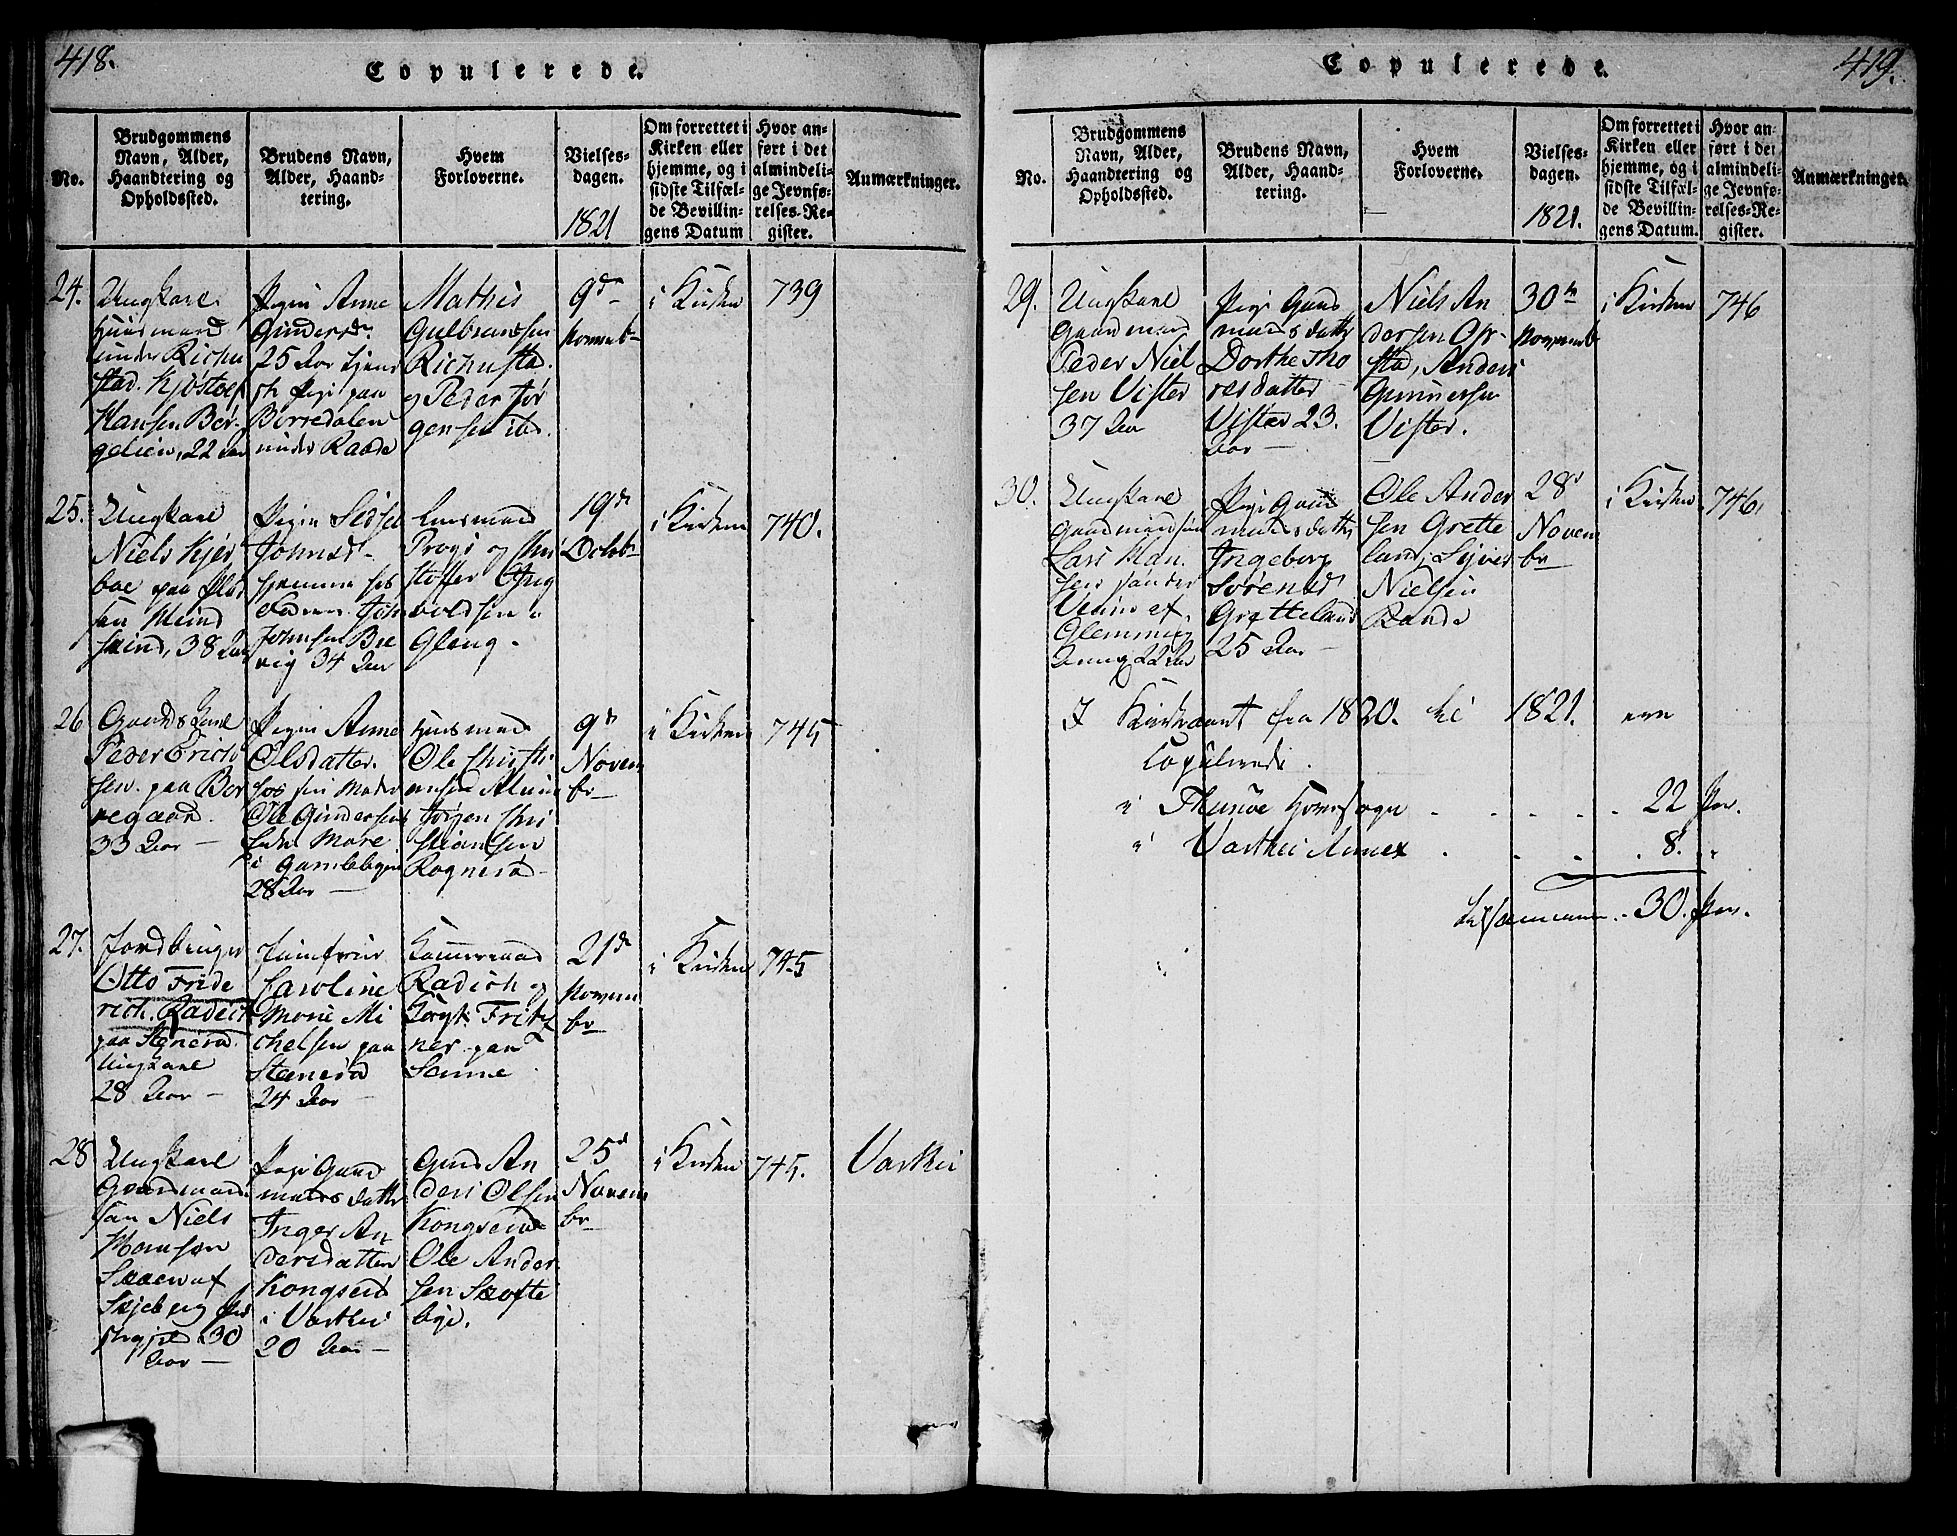 418.
Copulerede.
No.
Brudgommens
Navn, Alder,
Haandtering og
Opholdssted.
Brudens Navn,
Alder, Haand-
tering.
Hvem
Forloverne.
Vielses-
dagen.
1821
Om forrettet i
Kirken eller
hjemme, og i
sidste Tilfæl-
de Bevillin-
gens Datum
Hvor an-
ført i det
almindeli-
ge Jevnfø-
relses-Re-
gister.
Anmærkninger.
24.
Ungkarl
Huusmand
under Richu
stad Kjøstoef
Hansen Bør-
gelien, 22 Aar
Pigen Anne
Gundersdr
25 Aar tjene
Pige paa
Borredalen
under Raade
Mathis
Gulbrandsen
Richustad.
og Peder Jør
gensen ibd.
9de
Novemb
i Kirken
739
25.
Ungkarl
Niels Kjer
boe paa Plad
sen
38 Aar
Pigen Sidsel
Johnsd
hjemme hos
Faderen John
Johnsen Bre
vig 34 Aar
Lensmand
og Chri
stoffer Ing
voldsen
Gleng.
19de
Octobr
i Kirken
740.
26
Gaards Karl
Peder Erich
sen paa Bor
regaard
33 Aar
Pigen Anne
Olsdatter
hos sin Moder
Ole Gundersens
Enke More
i Gamlebyen
28 Aar
Huusmand
Ole Christi
ansen Alum
Jørgen Chri
stiansen
Rognerød
9de
Novem
br
i Kirken
745
27.
Jordbruger
Otto Fride
rich Radich
paa Stenerød
Ungkarl
28 Aar
Jumfrue
Caroline
Marie Mi
chelsen paa
Stenerød
24 Aar
Kammerraad
Radich og
Fritz
ner paa
Sanne
21de
Novem
br
i Kirken
745
28
Ungkarl
Gaardmand
søn Niels
Monsøn
Skaaen af
Skjeberg Præ
stegjeld 30
Aar
Pige Gaard
mands datter
Inger An
dersdatter
Kongserød
i Varteig
20 Aar
Gmd An
ders Olsen
Kongserød
Ole Ander
sen Skofte
bye.
25d
Novem
br
i Kirken
745.
Varteig
419.
Copulerede.
No.
Brudgommens
Navn, Alder,
Haandtering og
Opholdssted.
Brudens Navn,
Alder, Haand-
tering.
Hvem
Forloverne.
Vielses-
dagen.
1821.
Om forrettet i
Kirken eller
hjemme, og i
sidste Tilfæl-
de Bevillin-
gens Datum.
Hvor an-
ført i det
almindeli-
ge Jevnfø-
relses-Re-
gister.
Anmærkninger.
29.
Ungkarl
Gaardmand
Peder Niel
sen Vister
37 Aar
Pige Gaard
mands datter
Dorthe Tho
resdatter
Vister 23.
Aar
Niels An
dersen Op-
stad, Anders
Gunnersen
Vister.
30te
Novemb
i Kirken
746
30.
Ungkarl
Gaardmandssøn
Lars Han
sen
af
Glemminge
22 Aar
Pige Gaard
mandsdatter
Ingeborg
Sørensd
Gretteland
25 Aar
Ole Ander
sen Grette
land, Syver
Nielsen
Rande
28d
Novem
br
i Kirken
746.
I Kirkeaaret fra 1820. til 1821. ere
Copulerede.
i Thunøe Hovedsogn 22 Par.
i Varteig Annex 8. "
tilsammen 30. Par.